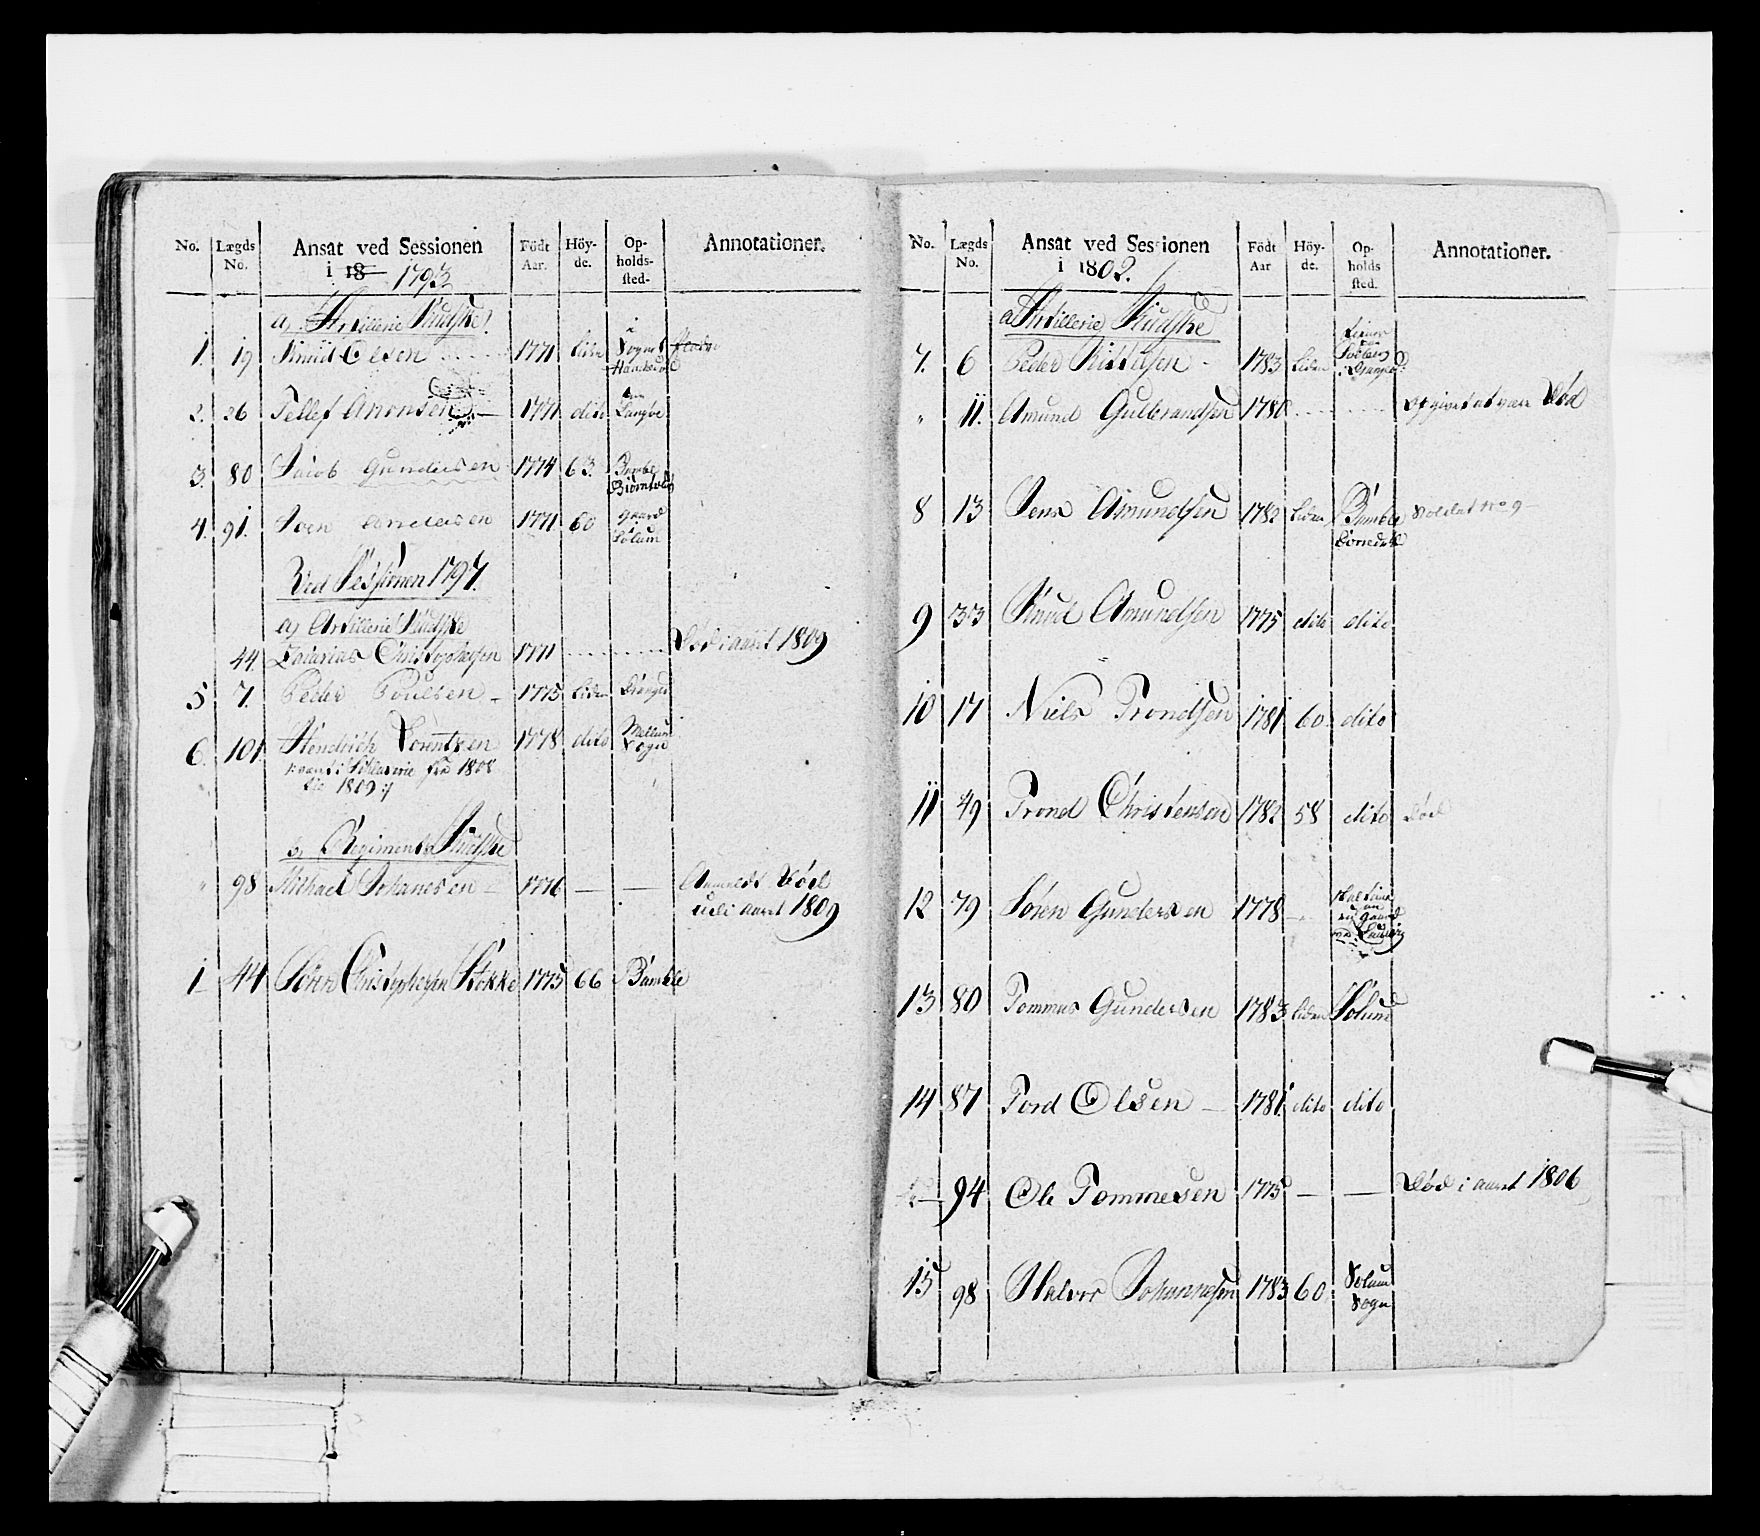 No. Lægds No. Ansat ved Sessionen i 18 1793 Födt Aar. Höyde. Opholdssted. Annotationer.
a) Artillerie Kudske
1. 19 Knud Olsen 1771 Sogn
2. 26 Tellef Aronsen 1771 dito Langöe
3. 80 Jacob Gundersen 1774 63. Bamble
4. 91. Soen Andersen 1771 60 gaard i Solum
Ved Sessionen 1797.
a) Artillerie Kudske
44. Zacarias Christophersen 1771 Död i aaret 1809
5 7. Peder Poulsen 1775 liden Dranged
6. 101 Hendrich Lorentzen 1778 dito Mellum Sogn
fra 1808 til 1809
Regiments Kudske
" 98 Michael Johanesen 1776 — — Anmeldt Död
udi aaret 1809
1 44 Sören Christophersen Stokke 1775 66 Bamble
No. Lægds No. Ansat ved Sessionen i 1802. Födt Aar Höyde. Opholds sted. Annotationer.
a) Artillerie Kudske
7. 6 Peder Kittilsen 1783 liden Dranged
" 11. Amund Gulbrandsen 1780 Opgivet at være Död
8 13 Jens Amundsen 1782 liden Bamble Soldat No 9
9 33 Knud Amundsen 1775 dito dito
10 17 Niels Trondsen 1781 60 dito
11 49 Trond Christensen 1782 58 dito Död
12 79 Sören Gundersen 1778 gaard
13 80 Tommas Gundersen 1783 liden Solum
14 87 Tord Olsen 1781 dito dito
94 Ole Tommesen 1775 — — Död i aaret 1806
15 98 Halvor Johannesen 1783 60 Solum Sogn